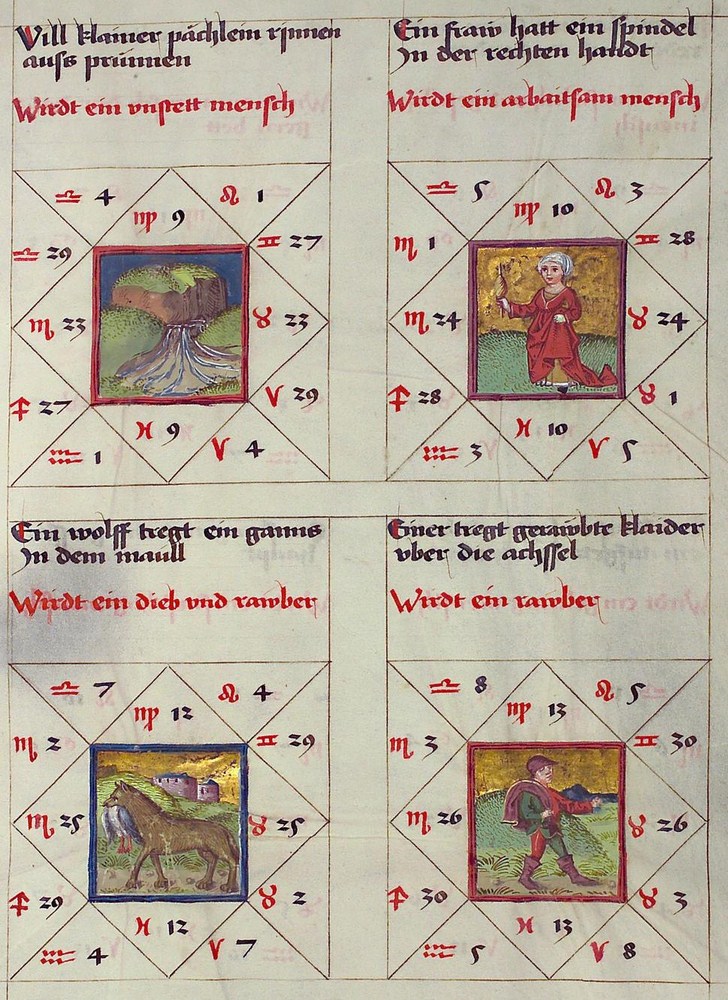 Vill klainer pächlein rinnen
auss prünnen
Wirdt ein vnstett mensch
♎ 4 ♌ 1
♍ 9
♎ 29 ♊ 27
♏ 23 ♉ 23
♐ 27 ♈ 29
♓ 9
♒ 1 ♈ 4
Ein fraw hatt ein spindel
In der rechten handt
Wirdt ein arbaitsam mensch
♎ 5 ♌ 3
♍ 10
♏ 1 ♊ 28
♏ 24 ♉ 24
♐ 28 ♉ 1
♓ 10
♒ 3 ♈ 5
Ein wolff tregt ein ganns
In dem maull
Wirdt ein dieb vnd rawber
♎ 7 ♌ 4
♍ 12
♏ 2 ♊ 29
♏ 25 ♉ 25
♐ 29 ♉ 2
♓ 12
♒ 4 ♈ 7
Einer tregt gerawbte klaider
vber die achssel
Wirdt ein rawber
♎ 8 ♌ 5
♍ 13
♏ 3 ♊ 30
♏ 26 ♉ 26
♐ 30 ♉ 3
♓ 13
♒ 5 ♈ 8